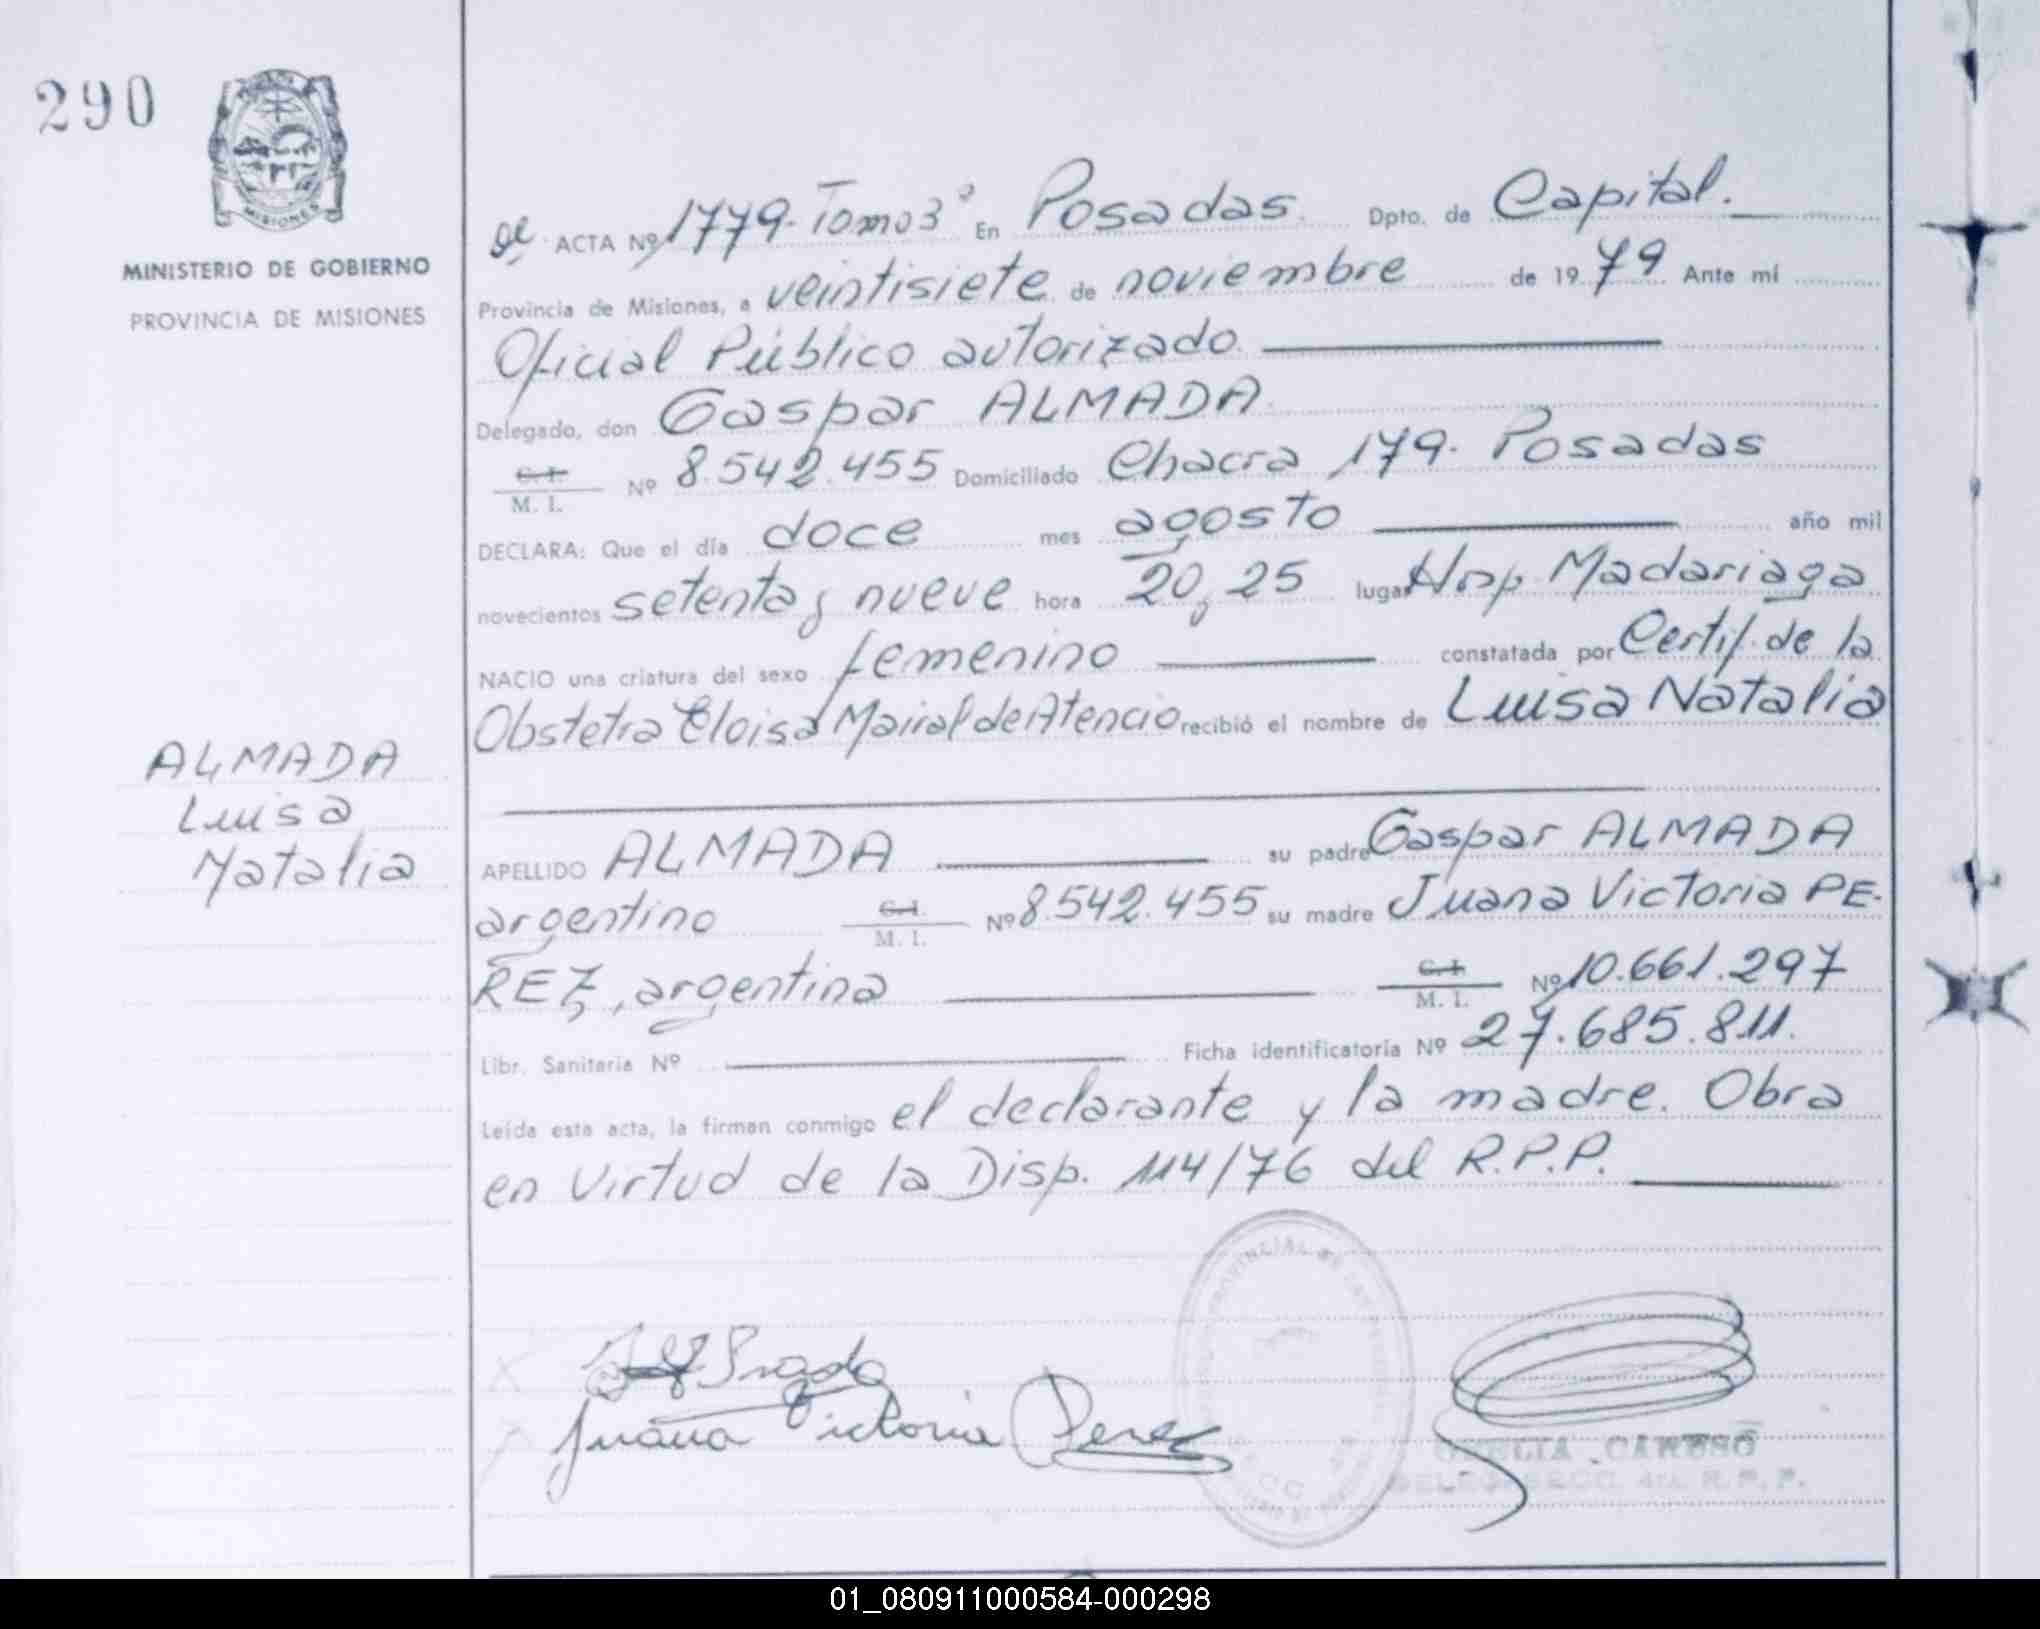 290
MISIONES
MINISTERIO DE GOBIERNO
PROVINCIA DE MISIONES
ACTA Nº 1779. Tomo 3º En Posadas. Dpto. de Capital.
Provincia de Misiones, a veintisiete de noviembre de 1979 Ante mí
Oficial Público autorizado.
Delegado, don Gaspar ALMADA.
C. I.
M. I. Nº 8.542.455 Domiciliado Chacra 179. Posadas
DECLARA: Que el día doce mes agosto año mil
novecientos setenta y nueve hora 20,25 lugar Hosp. Madariaga
NACIO una criatura del sexo femenino constatada por Certif. de la
Obstetra Eloisa Mairal de Atencio recibió el nombre de Luisa Natalia
ALMADA
Luisa
Natalia
APELLIDO ALMADA su padre Gaspar ALMADA
argentino C. I. M. I. Nº 8.542.455 su madre Juana Victoria PE-
REZ, argentina C. I. M. I. Nº 10.661.297
Libr. Sanitaria Nº Ficha identificatoria Nº 27.685.811.
Leída esta acta, la firman conmigo el declarante y la madre. Obra
en virtud de la Disp. 114/76 del R.P.P.
Juana Victoria Perez
CARUSO
R. P. P.
01_080911000584-000298